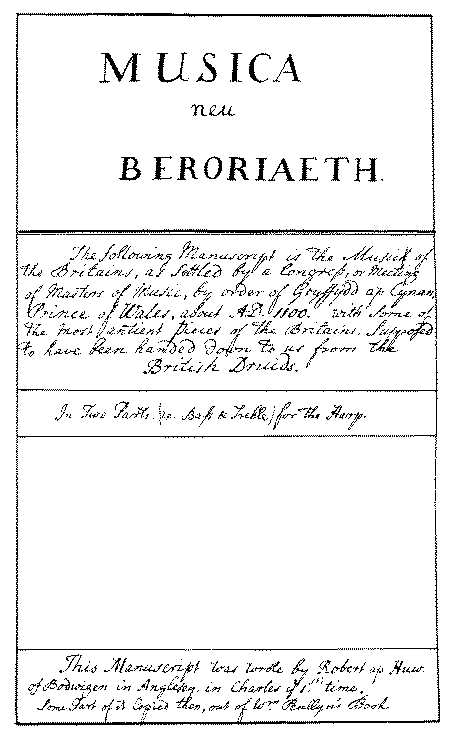 MUSICA
neu
BERORIAETH.
The following Manuscript is the Musick of
the Britains, as settled by a Congress, or Meeting
of Masters of Music, by order of Gryffydd ap Cynan,
Prince of Wales, about A.D. 1100. with some of
the most antient pieces of the Britains. Supposed
to have been handed down to us from the
British Druids.
In Two Parts (ie. Bass & Treble) for the Harp.
This Manuscript was wrote by Robert ap Huw
of Bodwigen in Anglesey, in Charles ye 1st time.
Some Part of it Copied then, out of Wm Penllyn's Book